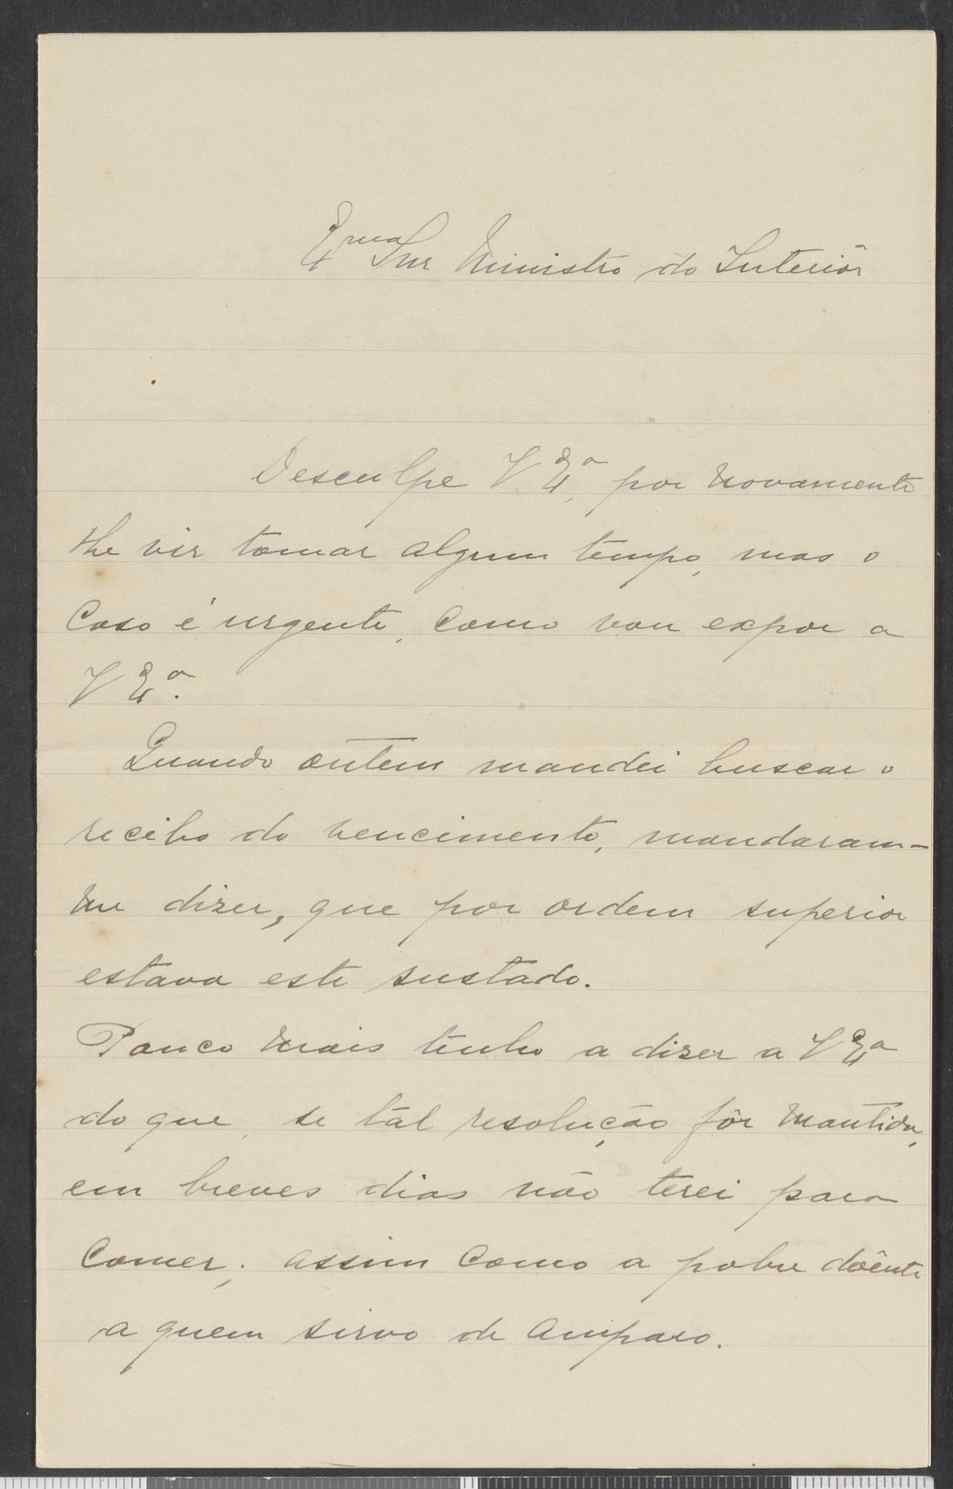 Exmo Snr Ministro do Interiôr
Desculpe V Exa, por novamente
lhe vir tomar algum tempo, mas o
caso é urgente, como vou expor a
V Exa.
Quando ontem mandei buscar o
recibo do vencimento, mandaram-
me dizer, que por ordem superior
estava este sustado.
Pouco mais tenho a dizer a V Exa
do que, se tál resolução fôr mantida,
em breves dias não terei para
comer; assim como a pobre dôente
a quem sirvo de amparo.